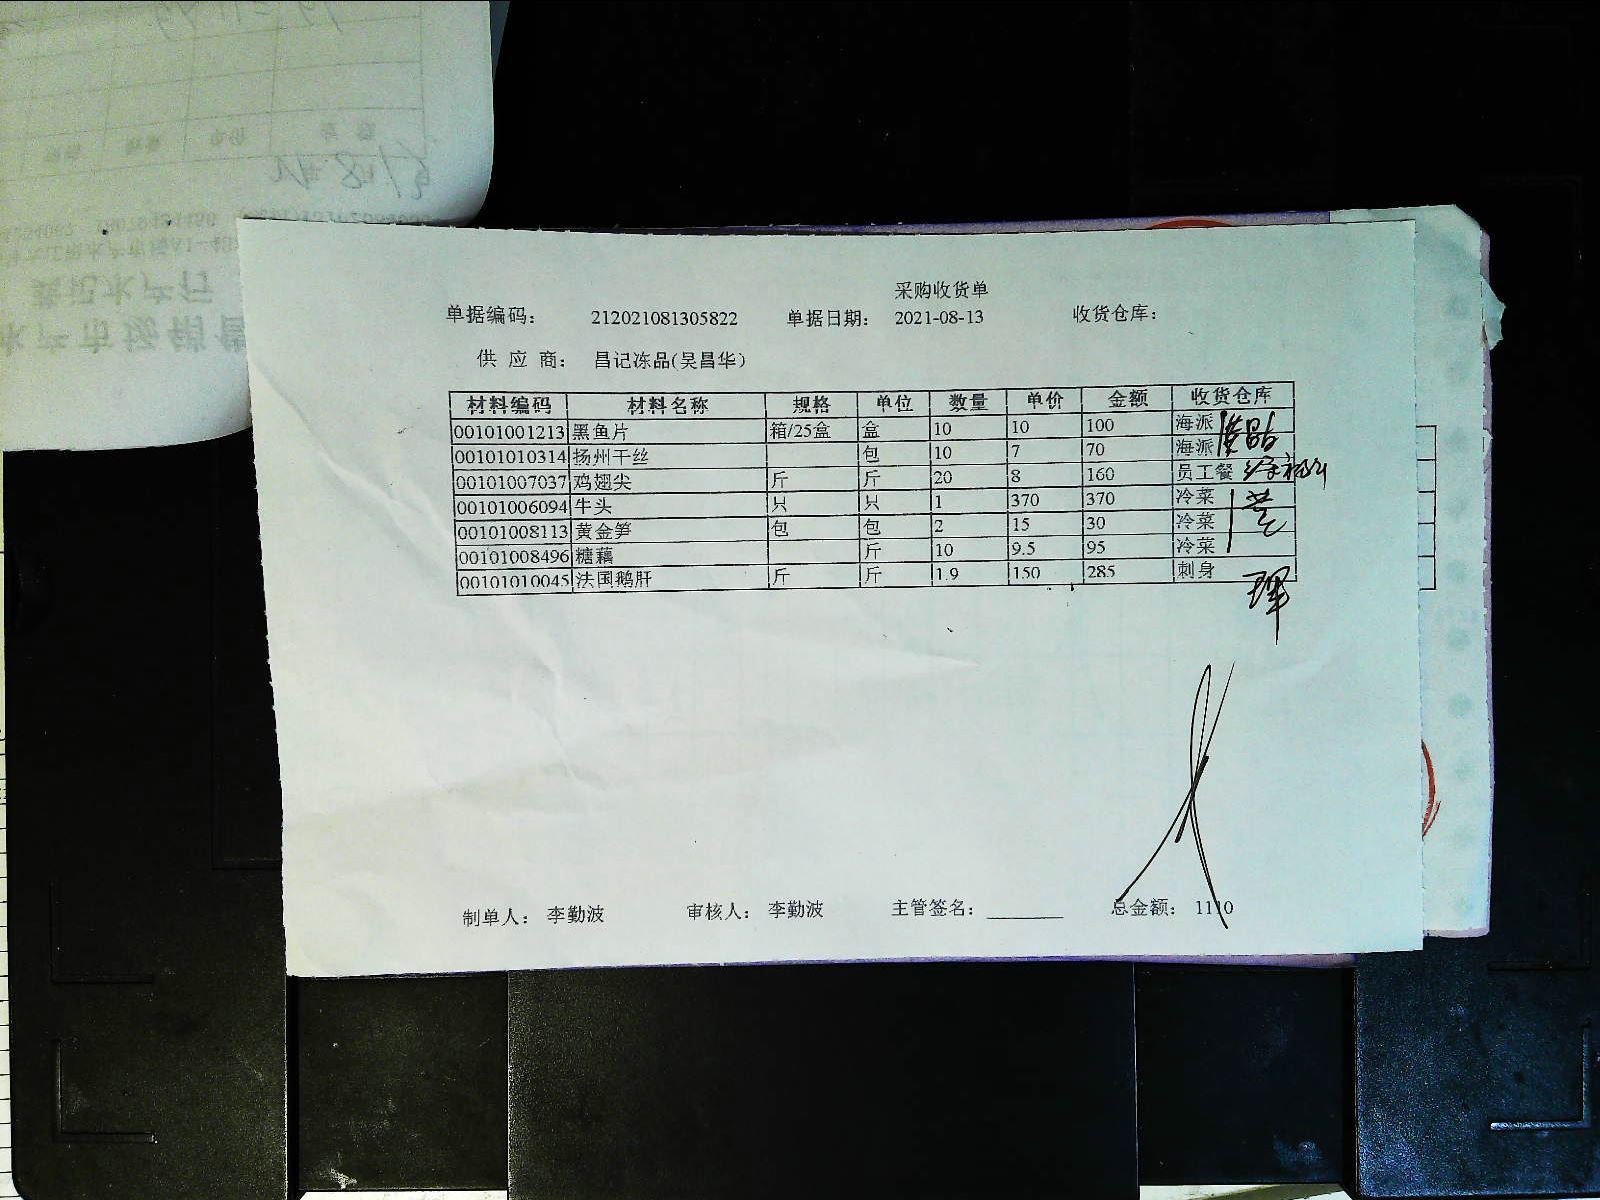 采购收货单
单据编码： 212021081305822 单据日期： 2021-08-13 收货仓库：
供 应 商： 昌记冻品(吴昌华)
材料编码 材料名称 规格 单位 数量 单价 金额 收货仓库
00101001213 黑鱼片 箱/25盒 盒 10 10 100 海派
00101010314 扬州干丝 包 10 7 70 海派
00101007037 鸡翅尖 斤 斤 20 8 160 员工餐
00101006094 牛头 只 只 1 370 370 冷菜
00101008113 黄金笋 包 包 2 15 30 冷菜
00101008496 糖藕 斤 10 9.5 95 冷菜
00101010045 法国鹅肝 斤 斤 1.9 150 285 刺身
制单人： 李勤波 审核人： 李勤波 主管签名： 总金额： 1110